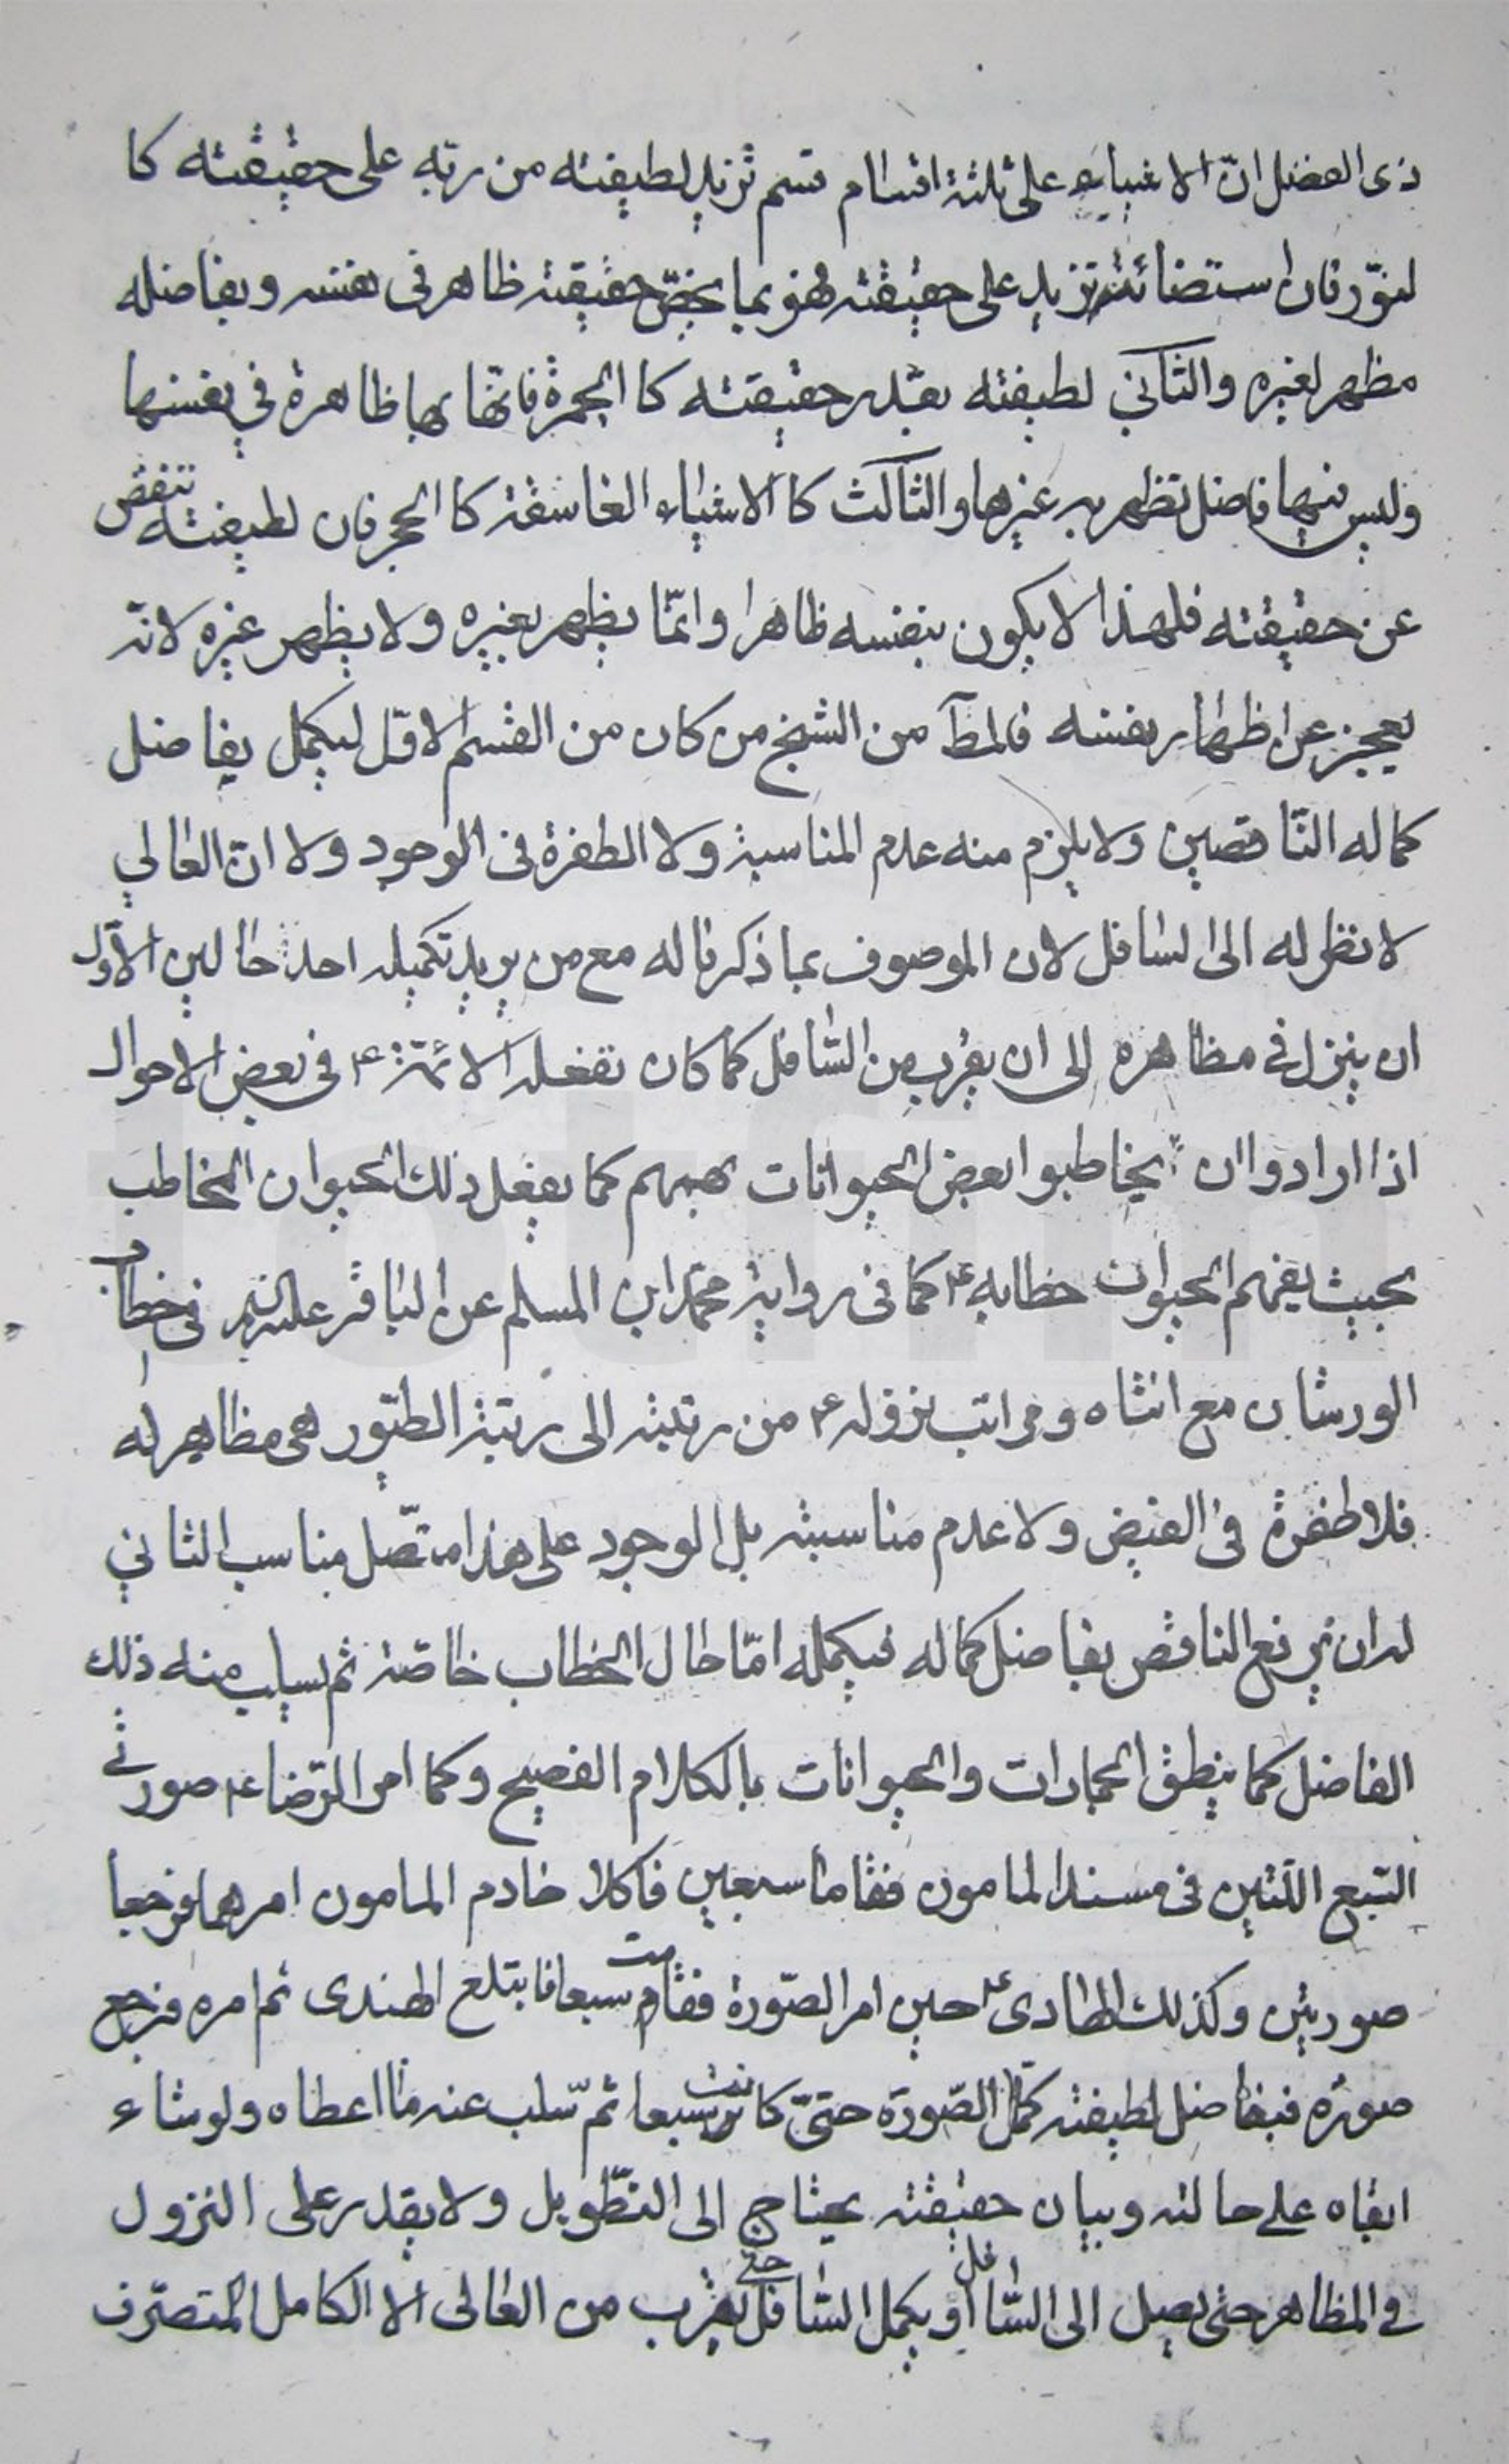 ذى الفضل انّ الاشياء على ثلثة اقسام قسم تزيد لطيفته من ربّه على حقيقته كا
لنوّر فان استضائته تزيد على حقيقته فهو بما يخصّ حقيقته ظاهر فى نفسه و بفاضله
مظهر لغيره والثانى لطيفته بقدر حقيقته كا الجمرة فانّها بها ظاهرة في نفسها
وليس فيها فاضل تظهر به غيرها والثالث كا الاشياء الغاسقة كا الحجر فان لطيفته تنقص
عن حقيقته فلهذا لا يكون بنفسه ظاهرا وانمّا يظهر بغيره ولا يظهر غيره لانّه
يعجز عن اظهار نفسه فالمط من الشيخ من كان من القسم الاوّل ليكمل بفاضل
كماله النّاقصين ولا يلزم منه عدم المناسبة ولا الطفرة فى الوجود ولا انّ العالي
لا نظر له الى السافل لان الموصوف بما ذكرنا له مع من يريد تكميله احد حالين الاوّل
ان ينزل فى مظاهره الى ان يقرب من السّافل كما كان تفعله الائمّة ع فى بعض الاحوال
اذا ارادوا ان يخاطبوا بعض الحيوانات بهممهم كما يفعل ذلك الحيوان المخاطب
بحيث يفهم الحيوان خطابه ع كما فى رواية محمّد ابن المسلم عن الباقر عليه السلم فى خطاب
الورشان مع انثاه و مراتب نزوله ع من رتبته الى رتبة الطيّور هى مظاهر له
فلا طفرة فى الفيض ولا عدم مناسبة بل الوجود على هذا متّصل مناسب الثاني
له ان يرفع الناقص بفاضل كماله فيكمله امّا حال الخطاب خاصّة ثم يسلب منه ذلك
الفاضل كما ينطق الجمادات والحيوانات بالكلام الفصيح وكما امر الرّضا ع صورتى
السّبع اللّتين فى مسند المامون فقاما سبعين فاكلا خادم المامون امرهما فرجعا
صورتين وكذلك الهادى ع حين امر الصّورة فقامت سبعا فابتلع الهندى ثم امره فرجع
صورة فبفاضل لطيفته كمّل الصّورة حتىّ كانت سبعا ثمّ سلب عنه ما اعطاه ولو شاء
ابقاه على حالته وبيان حقيقته يحتاج الى التطّويل ولا يقدر على النزول
فى المظاهر حتى يصل الى السّافل او يكمل السّافل حتى يقرب من العالى الا الكامل المتصرّف